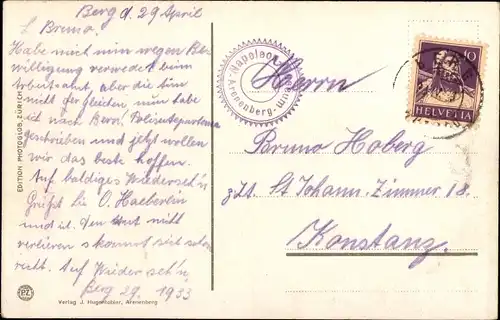 Berg d. 29 April
L. Bruno.
Habe mich nun wegen Be-
willigung verwendet beim
Arbeitsamt, aber die tun
nicht der gleichen nun habe
ich nach Bern, Polizeidepartem
geschrieben und jetzt wollen
wir das beste hoffen.
Auf baldiges Wiederseh'n
Grüßt Sie O. Haeberlin
und
verlieren s kommt sich schon
recht. Auf Wiederseh'n
Berg 29. 1933
EDITION PHOTOGLOB, ZÜRICH
PZ
Verlag J. Hugentobler, Arenenberg
Napoleon
Arenenberg
10
HELVETIA
Herrn
Bruno Hoberg
z. Zt. St Johann-Zimmer 18.
Konstanz.